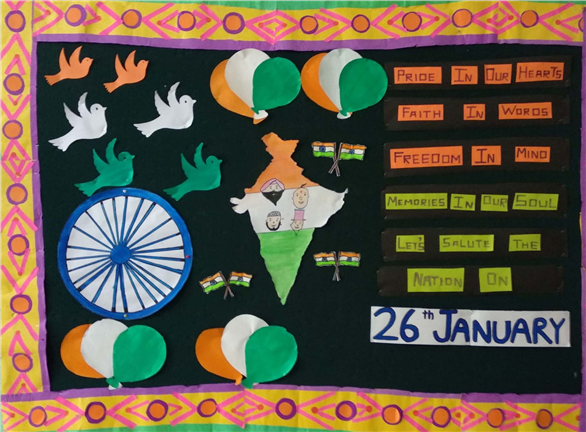 PRIDE IN OUR HEARTS
FAITH IN WORDS
FREEDOM IN MIND
MEMORIES IN OUR SOUL
LET'S SALUTE THE
NATION ON
26th JANUARY